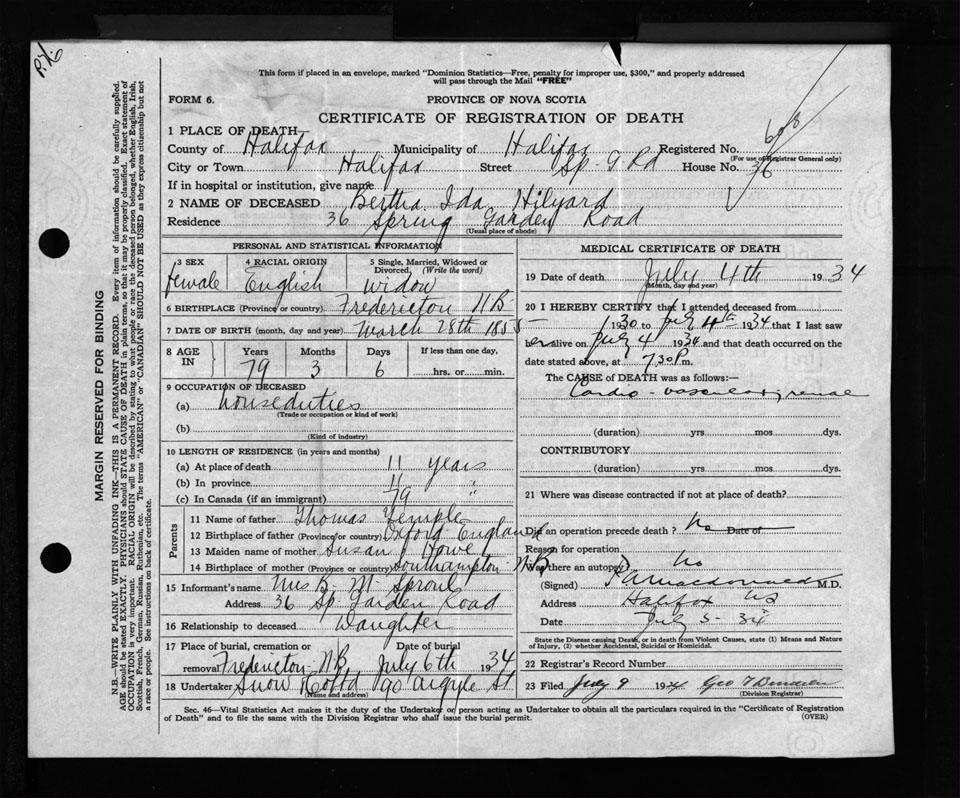 P.X.6
This form if placed in an envelope, marked "Dominion Statistics—Free, penalty for improper use, $300," and properly addressed
will pass through the Mail "FREE"
FORM 6.
PROVINCE OF NOVA SCOTIA
CERTIFICATE OF REGISTRATION OF DEATH
1 PLACE OF DEATH—
County of Halifax Municipality of Halifax Registered No. 608
(For use of Registrar General only)
City or Town Halifax Street Sp. G Rd House No. 36
If in hospital or institution, give name
2 NAME OF DECEASED Bertha Ida Hilyard
Residence 36 Spring Garden Road
(Usual place of abode)
PERSONAL AND STATISTICAL INFORMATION
3 SEX 4 RACIAL ORIGIN 5 Single, Married, Widowed or
Divorced, (Write the word)
female English widow
6 BIRTHPLACE (Province or country) Fredericton N B
7 DATE OF BIRTH (month, day and year) March 28th 1855
8 AGE IN Years Months Days If less than one day,
79 3 6 hrs. or min.
9 OCCUPATION OF DECEASED
(a) house duties
(Trade or occupation or kind of work)
(b)
(Kind of industry)
10 LENGTH OF RESIDENCE (in years and months)
(a) At place of death 11 years
(b) In province 11 "
(c) In Canada (if an immigrant) 79 "
Parents
11 Name of father Thomas Temple
12 Birthplace of father (Province or country) Oxford England
13 Maiden name of mother Susan J Howe
14 Birthplace of mother (Province or country) Southampton N.B
15 Informant's name Mrs B. M. Sproul
Address 36 Sp. Garden Road
16 Relationship to deceased Daughter
17 Place of burial, cremation or Date of burial
removal Fredericton N.B. July 6th 1934
18 Undertaker Snow & Co Ltd 90 Argyle St
(Name and address)
MEDICAL CERTIFICATE OF DEATH
19 Date of death July 4th 1934
(Month, day and year)
20 I HEREBY CERTIFY that I attended deceased from
1930 to July 4th 1934 that I last saw
her alive on July 4 1934 and that death occurred on the
date stated above, at 7.30 P.m.
The CAUSE of DEATH was as follows:—
Cardio-vascular renal
(duration) yrs mos dys.
CONTRIBUTORY
(duration) yrs mos dys.
21 Where was disease contracted if not at place of death?
Did an operation precede death? No Date of
Reason for operation
Was there an autopsy? No
(Signed) Macdonald M.D.
Address Halifax NS
Date July 5-34
State the Disease causing Death, or in death from Violent Causes, state (1) Means and Nature
of Injury, (2) whether Accidental, Suicidal or Homicidal.
22 Registrar's Record Number
23 Filed July 9 1934 Geo
(Division Registrar)
Sec. 46—Vital Statistics Act makes it the duty of the Undertaker or person acting as Undertaker to obtain all the particulars required in the "Certificate of Registration
of Death" and to file the same with the Division Registrar who shall issue the burial permit.
(OVER)
MARGIN RESERVED FOR BINDING
N.B.—WRITE PLAINLY WITH UNFADING INK—THIS IS A PERMANENT RECORD. Every item of information should be carefully supplied.
AGE should be stated EXACTLY. PHYSICIANS should STATE CAUSE OF DEATH in plain terms, so that it may be properly classified. Exact statement of
OCCUPATION is very important. RACIAL ORIGIN will be described by stating to what people or race the deceased person belonged, whether English, Irish,
Scottish, French, German, Russian, Ruthenian, etc. The terms "AMERICAN" or "CANADIAN" SHOULD NOT BE USED as they express citizenship but not
a race or people. See instructions on back of certificate.